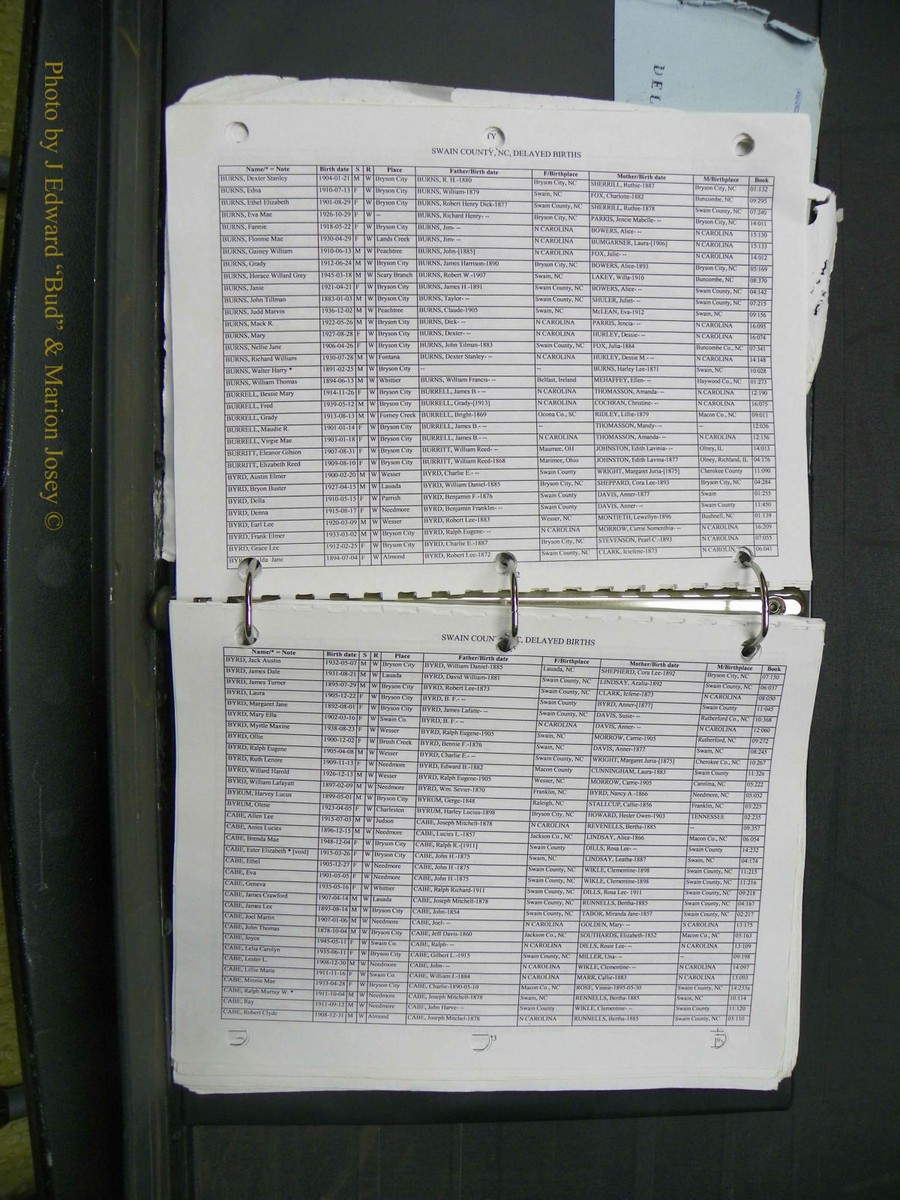 Photo by J Edward "Bud" & Marion Josey ©
DEL
SWAIN COUNTY, NC, DELAYED BIRTHS
Name/* = Note Birth date S R Place Father/Birth date F/Birthplace Mother/Birth date M/Birthplace Book
BURNS, Dexter Stanley 1904-01-21 M W Bryson City BURNS, R. H.-1880 Bryson City, NC SHERRILL, Ruthie-1887 Bryson City, NC 01:132
BURNS, Edna 1910-07-13 F W Bryson City BURNS, William-1879 Swain, NC FOX, Charlotte-1882 Buncombe, NC 09:295
BURNS, Ethel Elizabeth 1901-08-29 F W Bryson City BURNS, Robert Henry Dick-1877 Swain County, NC SHERRILL, Ruthie-1878 Swain County, NC 07:240
BURNS, Eva Mae 1926-10-29 F W -- BURNS, Richard Henry- -- Bryson City, NC PARRIS, Jencie Mabelle- -- Bryson City, NC 14:011
BURNS, Fannie 1918-05-22 F W Bryson City BURNS, Jim- -- N CAROLINA BOWERS, Alice- -- N CAROLINA 15:130
BURNS, Flonnie Mae 1930-04-29 F W Lands Creek BURNS, Jim- -- N CAROLINA BUMGARNER, Laura-[1906] N CAROLINA 15:133
BURNS, Gainey William 1910-06-13 M W Peachtree BURNS, John-[1885] N CAROLINA FOX, Julie- -- N CAROLINA 14:012
BURNS, Grady 1912-06-24 M W Bryson City BURNS, James Harrison-1890 Bryson City, NC BOWERS, Alice-1893 Bryson City, NC 05:169
BURNS, Horace Willard Grey 1945-03-18 M W Scary Branch BURNS, Robert W.-1907 Swain, NC LAKEY, Willa-1910 Buncombe, NC 08:370
BURNS, Janie 1921-04-21 F W Bryson City BURNS, James H.-1891 Swain County, NC BOWERS, Alice- -- Swain County, NC 04:342
BURNS, John Tillman 1883-01-03 M W Bryson City BURNS, Taylor- -- Swain County, NC SHULER, Juliet- -- Swain County, NC 07:215
BURNS, Judd Marvin 1936-12-02 M W Peachtree BURNS, Claude-1905 Swain, NC McLEAN, Eva-1912 Swain, NC 09:156
BURNS, Mack R. 1922-05-26 M W Bryson City BURNS, Dick- -- N CAROLINA PARRIS, Jencia- -- N CAROLINA 16:095
BURNS, Mary 1927-08-28 F W Bryson City BURNS, Dexter- -- N CAROLINA HURLEY, Dessie- -- N CAROLINA 16:074
BURNS, Nellie Jane 1906-04-26 F W Bryson City BURNS, John Tilman-1883 Swain County, NC FOX, Julia-1884 Buncombe Co., NC 07:341
BURNS, Richard William 1930-07-28 M W Fontana BURNS, Dexter Stanley- -- N CAROLINA HURLEY, Dessie M.- -- N CAROLINA 14:148
BURNS, Walter Harry * 1891-02-25 M W Bryson City -- -- BURNS, Harley Lee-1871 Swain, NC 10:028
BURNS, William Thomas 1894-06-13 M W Whittier BURNS, William Francis- -- Belfast, Ireland MEHAFFEY, Ellen- -- Haywood Co., NC 01:273
BURRELL, Bessie Mary 1914-11-26 F W Bryson City BURRELL, James B.- -- N CAROLINA THOMASSON, Amanda- -- N CAROLINA 12:190
BURRELL, Fred 1939-05-12 M W Bryson City BURRELL, Grady-[1913] N CAROLINA COCHRAN, Christine- -- N CAROLINA 16:075
BURRELL, Grady 1913-08-13 M W Forney Creek BURRELL, Bright-1869 Ocona Co., SC RIDLEY, Lillie-1879 Macon Co., NC 09:011
BURRELL, Maudie R. 1901-01-14 F W Bryson City BURRELL, James B.- -- -- THOMASSON, Mandy- -- -- 12:036
BURRELL, Virgie Mae 1903-01-18 F W Bryson City BURRELL, James B.- -- N CAROLINA THOMASSON, Amanda- -- N CAROLINA 12:156
BURRITT, Eleanor Gibson 1907-08-31 F W Bryson City BURRITT, William Reed- -- Maumee, OH JOHNSTON, Edith Lavinia- -- Olney, IL 14:013
BURRITT, Elizabeth Reed 1909-08-10 F W Bryson City BURRITT, William Reed-1868 Marimee, Ohio JOHNSTON, Edith Lavina-1877 Olney, Richland, IL 04:176
BYRD, Austin Elmer 1900-02-20 M W Wesser BYRD, Charlie E.- -- Swain County WRIGHT, Margaret Juria-[1875] Cherokee County 11:090
BYRD, Bryon Buster 1927-04-15 M W Lauada BYRD, William Daniel-1885 Bryson City, NC SHEPPARD, Cora Lee-1893 Bryson City, NC 04:284
BYRD, Della 1910-05-15 F W Parrish BYRD, Benjamin F.-1876 Swain County DAVIS, Anner-1877 Swain 01:255
BYRD, Denna 1915-08-17 F W Needmore BYRD, Benjamin Franklin- -- Swain County DAVIS, Anner- -- Swain County 11:450
BYRD, Earl Lee 1920-03-09 M W Wesser BYRD, Robert Lee-1883 Wesser, NC MONTIETH, Lewellyn-1896 Bushnell, NC 01:139
BYRD, Frank Elmer 1933-03-02 M W Bryson City BYRD, Ralph Eugene- -- N CAROLINA MORROW, Carrie Somenthia- -- N CAROLINA 16:209
BYRD, Grace Lee 1912-02-25 F W Bryson City BYRD, Charlie E.-1887 Bryson City, NC STEVENSON, Pearl C.-1893 Bryson City, NC 07:055
Jane 1894-07-04 F W Almond BYRD, Robert Lee-1872 Swain County, NC CLARK, Icielene-1873 N CAROLIN 06:041
SWAIN COUN C, DELAYED BIRTHS
Name/* = Note Birth date S R Place Father/Birth date F/Birthplace Mother/Birth date M/Birthplace Book
BYRD, Jack Austin 1932-05-07 M W Bryson City BYRD, William Daniel-1885 Lauada, NC SHEPHERD, Cora Lee-1892 Bryson City, NC 07:150
BYRD, James Dale 1931-08-21 M W Lauada BYRD, David William-1881 Swain County, NC LINDSAY, Azalia-1892 Swain County, NC 06:037
BYRD, James Turner 1895-07-29 M W Bryson City BYRD, Robert Lee-1873 Swain County, NC CLARK, Iclene-1873 N CAROLINA 08:050
BYRD, Laura 1905-12-22 F W Bryson City BYRD, B. F.- -- Swain County BYRD, Anner-[1877] Swain County 11:045
BYRD, Margaret Jane 1892-08-01 F W Bryson City BYRD, James Lafatte- -- Swain County, NC DAVIS, Susie- -- Rutherford Co., NC 10:368
BYRD, Mary Ella 1902-03-16 F W Swain Co. BYRD, B. F.- -- N CAROLINA DAVIS, Anner- -- N CAROLINA 12:060
BYRD, Myrtle Maxine 1938-08-23 F W Wesser BYRD, Ralph Eugene-1905 Swain, NC MORROW, Carrie-1905 Rutherford, NC 09:272
BYRD, Ollie 1900-12-02 F W Brush Creek BYRD, Bennie F.-1876 Swain, NC DAVIS, Anner-1877 Swain, NC 08:245
BYRD, Ralph Eugene 1905-04-08 M W Wesser BYRD, Charlie E.- -- Swain County, NC WRIGHT, Margaret Juria-[1875] Cherokee Co., NC 10:267
BYRD, Ruth Lenore 1909-11-13 F W Needmore BYRD, Edward B.-1882 Macon County CUNNINGHAM, Laura-1883 Swain County 11:326
BYRD, Willard Harold 1926-12-13 M W Wesser BYRD, Ralph Eugene-1905 Wesser, NC MORROW, Carrie-1905 Carolina, NC 05:222
BYRD, William Lafayatt 1897-02-09 M W Needmore BYRD, Wm. Sevier-1870 Franklin, NC BYRD, Nancy A.-1866 Needmore, NC 05:052
BYRUM, Harvey Lucus 1899-05-01 M W Bryson City BYRUM, Gerge-1848 Raleigh, NC STALLCUP, Callie-1856 Franklin, NC 03:225
BYRUM, Olese 1923-04-05 F W Charleston BYRUM, Harley Lucius-1898 Bryson City, NC HOWARD, Hester Owen-1903 TENNESSEE 02:235
CABE, Allen Lee 1915-07-03 M W Judson CABE, Joseph Mitchell-1878 N CAROLINA REVENELLS, Bertha-1885 -- 09:357
CABE, Amos Lucies 1896-12-15 M W Needmore CABE, Lucies L.-1857 Jackson Co., NC LINDSAY, Alice-1866 Macon Co., NC 06:054
CABE, Brenda Mae 1948-12-04 F W Bryson City CABE, Ralph R.-[1911] Swain County DILLS, Rosa Lee- -- Swain County 14:232
CABE, Ester Elizabeth * [void] 1915-03-26 F W Bryson City CABE, John H.-1875 Swain, NC LINDSAY, Leatha-1887 Swain, NC 04:174
CABE, Ethel 1905-12-27 F W Needmore CABE, John H.-1875 Swain County WIKLE, Clementine-1898 Swain County 11:215
CABE, Eva 1901-03-05 F W Needmore CABE, John H.-1875 Swain County WIKLE, Clementine-1898 Swain County 11:216
CABE, Geneva 1935-05-16 F W Whittier CABE, Ralph Richard-1911 Swain County, NC DILLS, Rosa Lee- 1911 Swain County, NC 09:218
CABE, James Crawford 1907-04-14 M W Lauada CABE, Joseph Mitchell-1878 Swain County, NC RUNNELLS, Bertha-1885 Swain County, NC 04:167
CABE, James Lee 1893-08-14 M W Bryson City CABE, John-1854 Swain County, NC TABOR, Miranda Jane-1857 Swain County, NC 02:217
CABE, Joel Martin 1907-01-06 M W Needmore CABE, Joel- -- N CAROLINA GOLDEN, Mary- -- S CAROLINA 13:175
CABE, John Thomas 1878-10-04 M W Bryson City CABE, Jeff Davis-1860 Jackson Co., NC SOUTHARDS, Elizabeth-1852 Macon Co., NC 05:163
CABE, Joyce 1945-05-11 F W Swain Co CABE, Ralph- -- N CAROLINA DILLS, Rosie Lee- -- N CAROLINA 13:109
CABE, Lelia Carolyn 1935-06-11 F W Bryson City CABE, Gilbert L.-1915 Swain County, NC MILLER, Una- -- -- 09:198
CABE, Lester L. 1908-12-30 M W Needmore CABE, John- -- N CAROLINA WIKLE, Clementine- -- N CAROLINA 14:097
CABE, Lillie Marie 1911-11-16 F W Swain Co. CABE, William J.-1884 N CAROLINA MARR, Callie-1883 N CAROLINA 13:093
CABE, Minnie Mae 1933-04-28 F W Bryson City CABE, Charlie-1890-05-10 Macon Co., NC ROSE, Vinnie-1895-05-30 Macon Co., NC 14:233a
CABE, Ralph Murray W. * 1911-10-04 M W Needmore CABE, Joseph Mitchell-1878 Swain, NC RENNELLS, Bertha-1885 Swain, NC 10:114
CABE, Ray 1911-09-12 M W Needmore CABE, John Harve- -- Swain County WIKLE, Clementine- -- Swain County 11:120
CABE, Robert Clyde 1908-12-31 M W Almond CABE, Joseph Mitchel-1878 N CAROLINA RUNNELLS, Bertha-1885 Swain County, NC 05:110